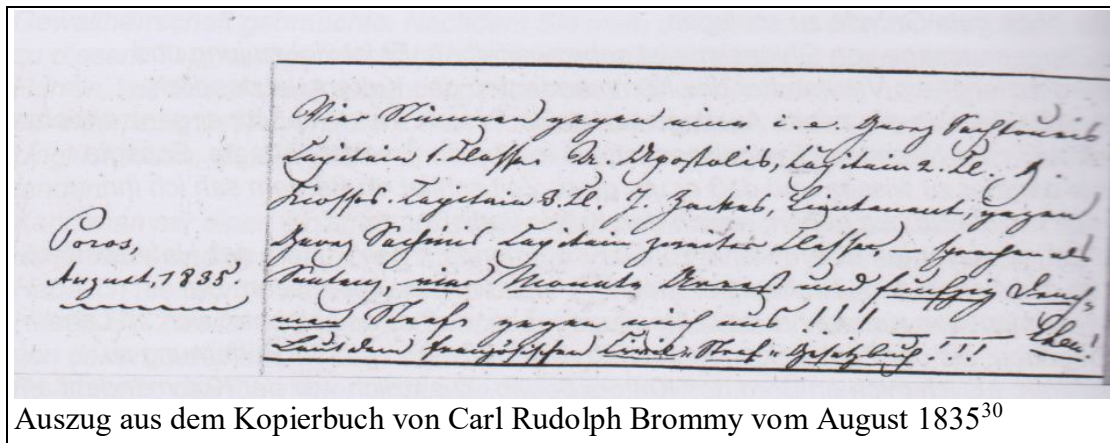 Poros,
August, 1835
Vier Stimmen gegen eine .... Georg Sachtouris
Capitain 1. Classe, Apostolis, Capitain 2. Cl.
Capitain 3. Cl. Lieutenant, gegen
Georg Capitain zweiter Classe – sprachen als
Sentenz, vier Monate Arrest und fünfzig Drach-
men Strafe gegen mich aus !!!!
Laut den französischen Civil-Straf-Gesetzbuch!!!
Auszug aus dem Kopierbuch von Carl Rudolph Brommy vom August 1835³⁰